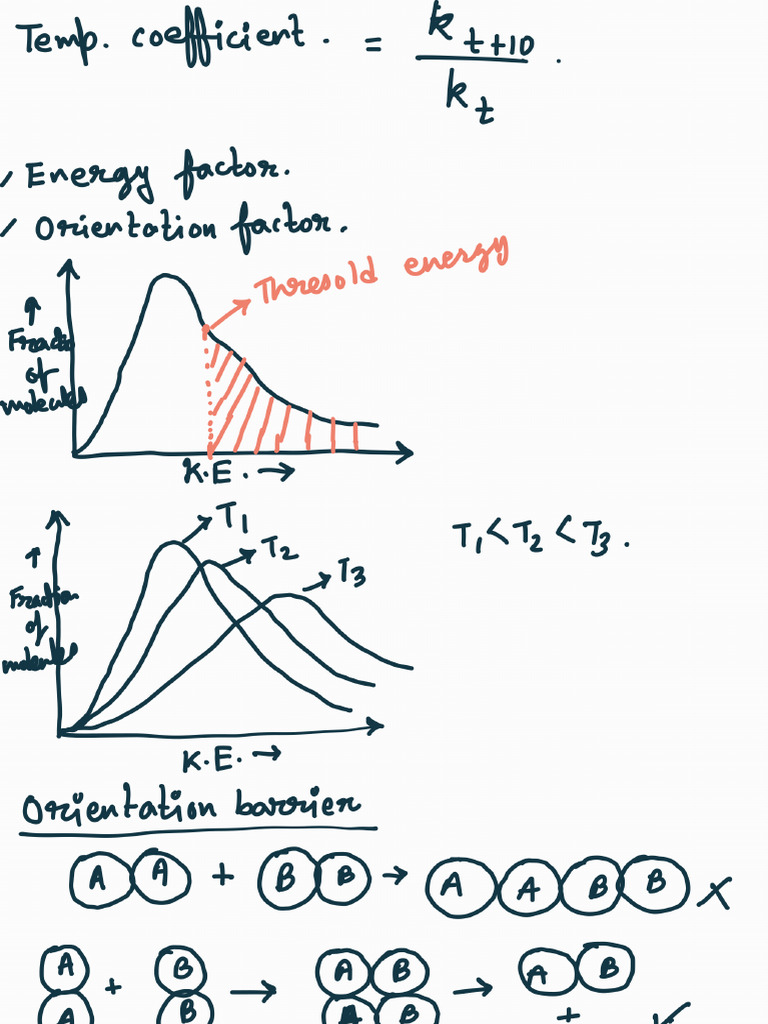 Temp. coefficient. = k t+10 / k t .
Energy factor.
Orientation factor.
Thresold energy
Fraction
of
molecules
K.E. →
T1
T2
T3
T1 < T2 < T3 .
Fraction
of
molecules
K.E. →
Orientation barrier
A A + B B → A A B B X
A + B → A B → A B
A B A B +